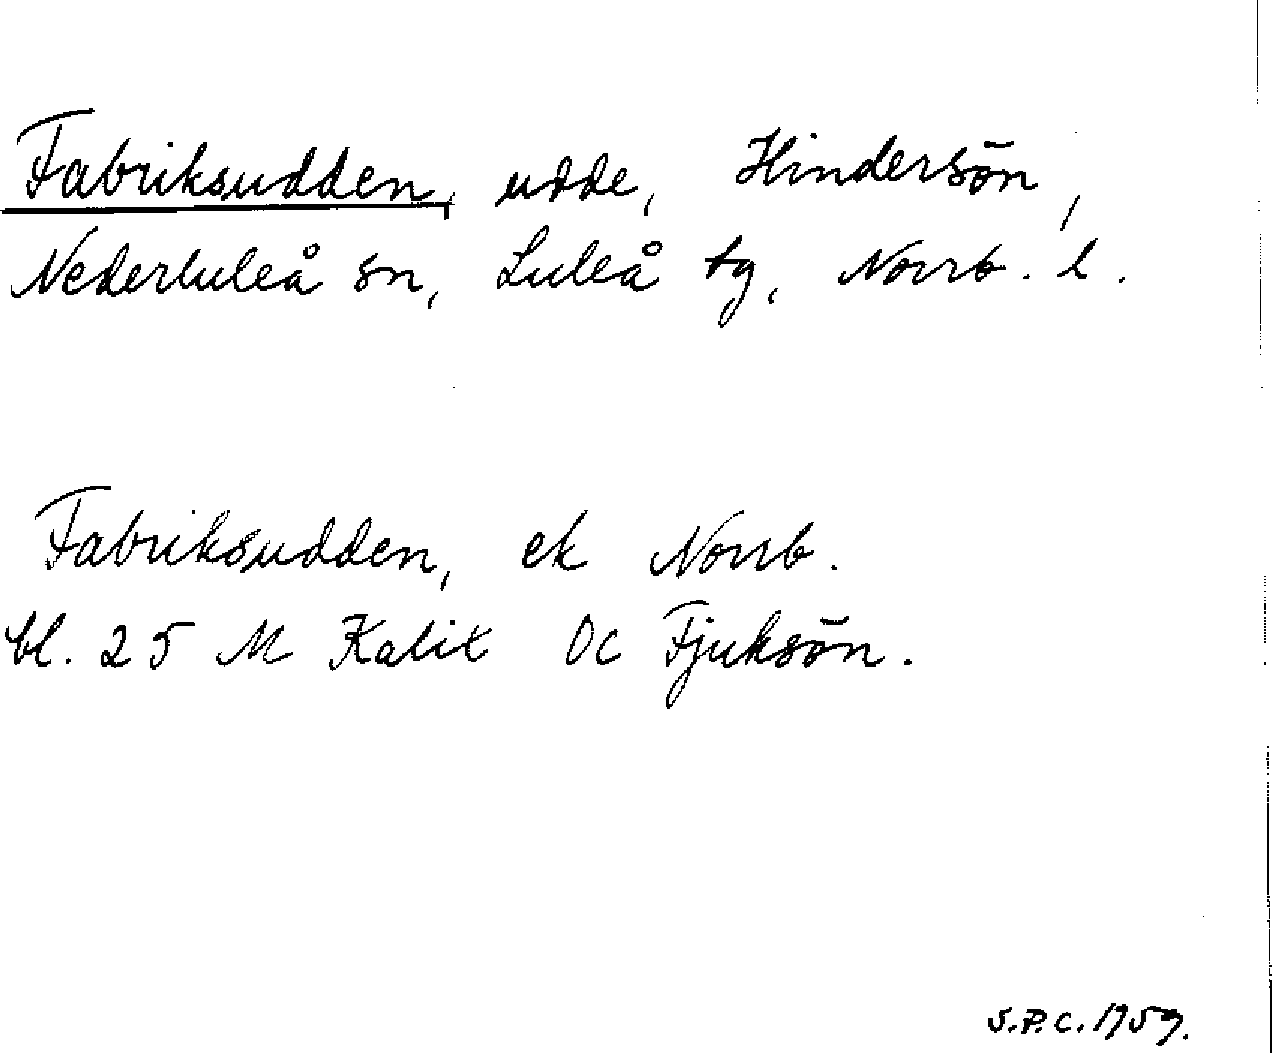 Fabriksudden, udde, Hindersön,
Nederluleå sn, Luleå tg, Norrb. l.
Fabriksudden, ek Norrb.
bl. 25 M Kalix Oc Fjuksön.
S.P.C. 1959.